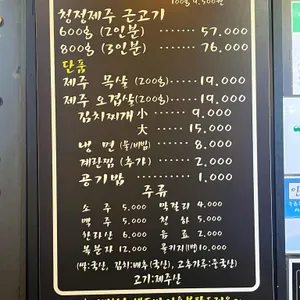 100g 9,500원
청정제주 근고기
600g (2인분) ...... 57,000
800g (3인분) ...... 76,000
단품
제주 목살 (200g) ..... 19,000
제주 오겹살 (200g) .... 19,000
김치찌개 小 ...... 9,000
大 ...... 15,000
냉면 (물/비빔) ...... 8,000
계란찜 (추가) ...... 2,000
공기밥 ...... 1,000
주류
소주 5,000 막걸리 4,000
맥주 5,000 청하 5,000
한라산 6,000 음료 2,000
복분자 12,000 콜키지1병10,000
(쌀:국산, 김치:배추(국산), 고춧가루:중국산)
고기:제주산